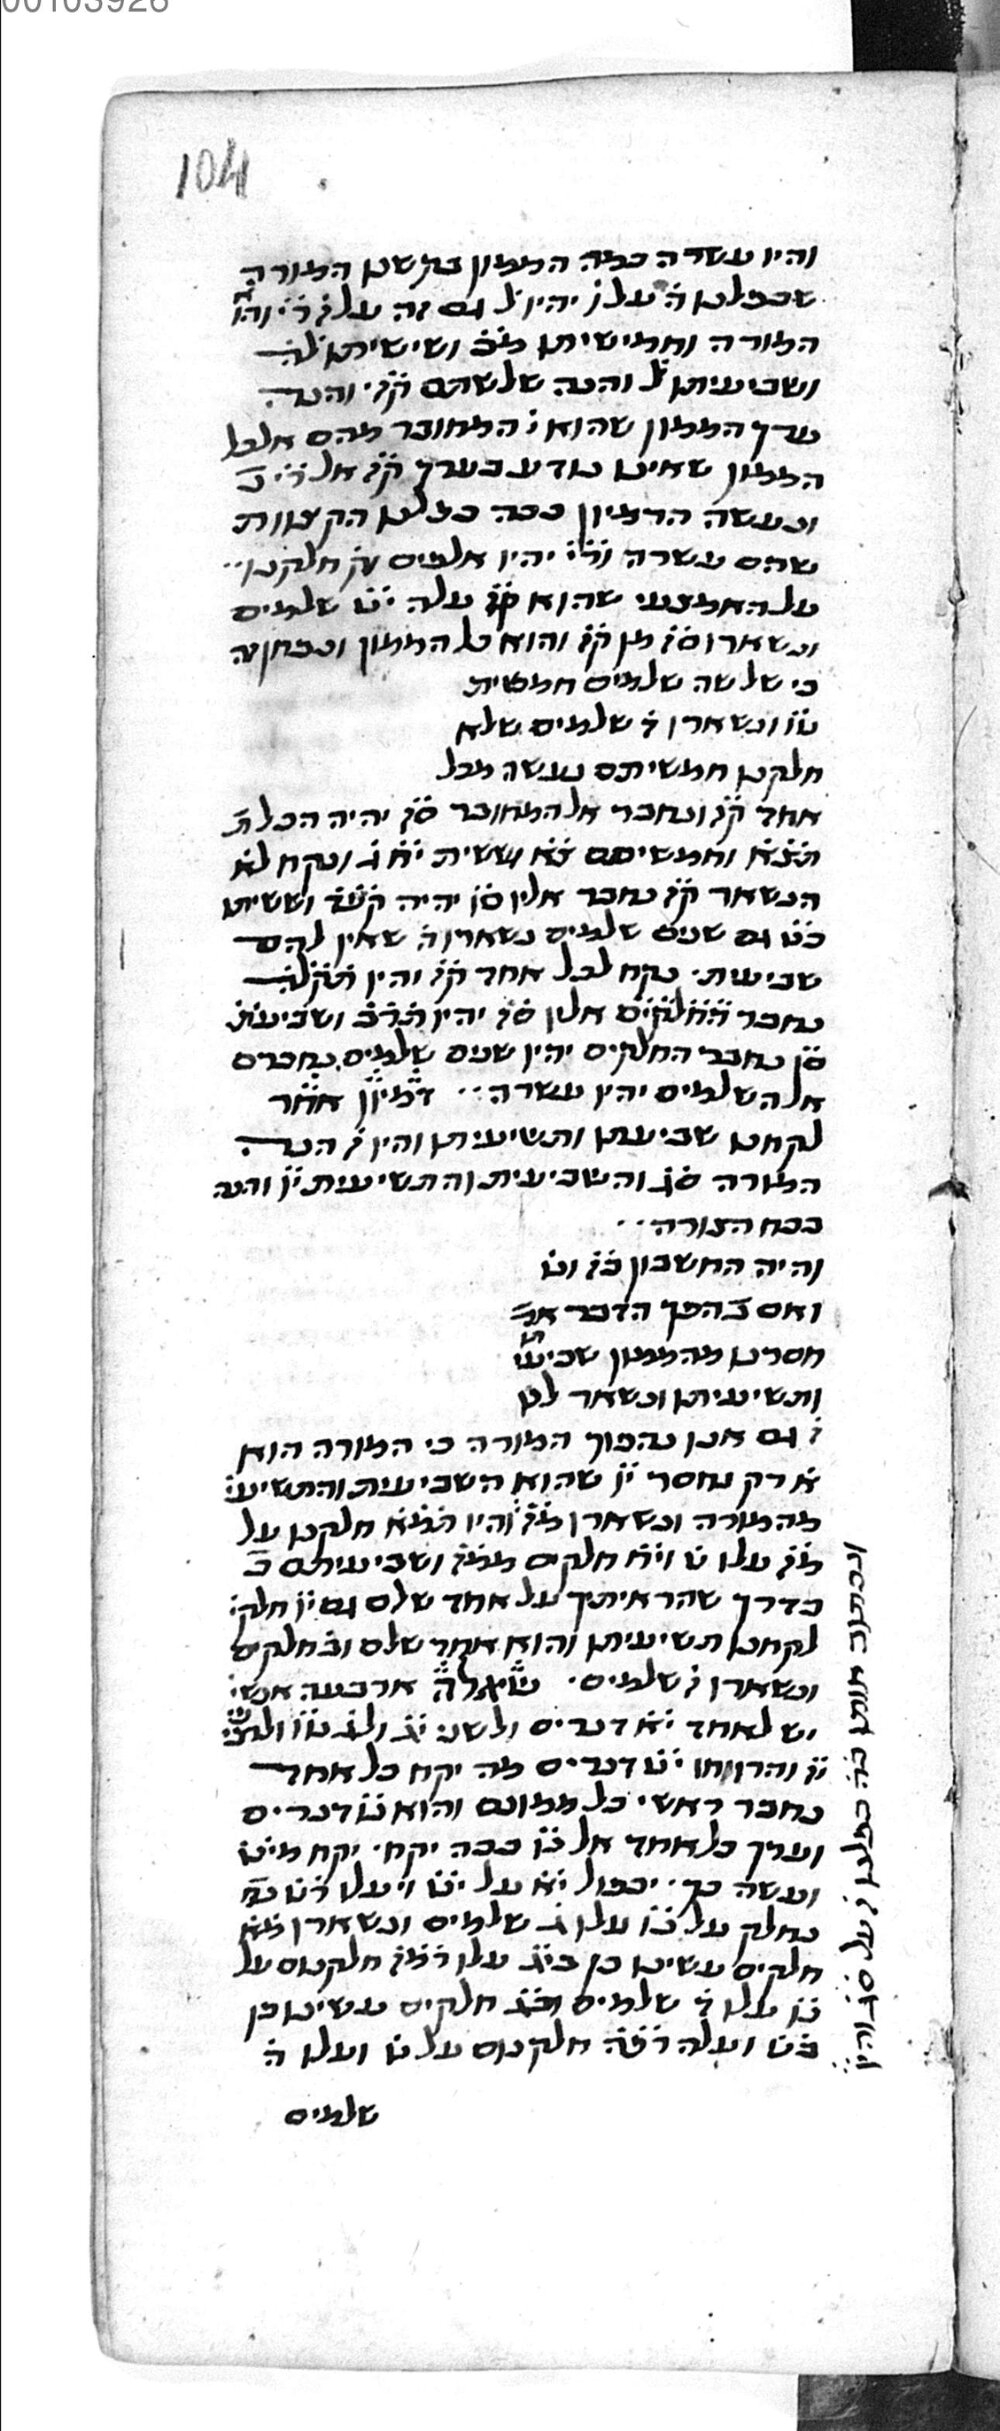 00103926
104
והיו עשרה כמה הממון בקשנו המורה
שכפלנו ה על ו יהיו ל גם זה על ז ר״י והו
המורה וחמישיתו מב ושישיתו לה
ושביעיתו ל והנה שלשתם קז והנה
ערך הממון שהוא י המחובר מהם אל כל
הממון שאינו נודע כערך קז אל ר״י
ונעשה הדמיון ככה כפלנו הקצוות
שהם עשרה ור״י יהיו אלפים ק חלקנו
על האמצעי שהוא קז עלה יט שלמים
ונשארו סז מן קז והוא כל הממון ונבחן זה
כי שלשה שלמים חמשית
טו ונשארו ד שלמים שלא
חלקנו חמשיתם נעשה מכל
אחד קז ונחבר אל המחובר סז יהיה הכל ת
תצא וחמשיתם צא וששית יח ג ונקח לא
הנשאר קז נחבר אליו סז יהיה קעד וששיתו
כט גם שנים שלמים נשארו ה שאין להם
שביעית נקח לכל אחד קז והיו תקלה
נחבר החלקים אליו סז יהיו תרב ושביעית
נחבר החלקים יהיו שנים שלמים נחברם
אל השלמים יהיו עשרה דמיון אחר
לקחנו שביעתו ותשיעיתו והיו ז הנה
המורה סג והשביעית והתשיעית יו והנה
ככה הצורה
והיה החשבון כז וט
ואם בהפך הדבר
חסרנו מהממון שביעי
ותשיעיתו ונשאר לנו
ז גם אנו נהפוך המורה כי המורה הוא
רק נחסר יו שהוא השביעית והתשיעי
מהמורה ונשארו מז והיו תמא חלקנו על
מז עלו ט ויח חלקים ממז ושביעיתם ב
כדרך שהראיתיך על אחד שלם גם יו חלקי
לקחנו תשיעיתו והוא אחד שלם וב חלקים
ונשארו ז שלמים שאלה ארבעה אנשי
יש לאחד יא דברים ולשני יג ולג טו ולרביעי
יז והרויחו יט דברים מה יקח כל אחד
נחבר ראשי כל ממונם והוא נו דברים
וערך כל אחד אל נו ככה יקח יקח מיט
ונעשה כך יכפול יא על יט ויעלו רט
נחלק על נו עלו ג שלמים ונשארו מא
חלקים עשינו כן ביג עלו רמז חלקנום על
נו עלו ד שלמים וכג חלקים עשינו כן
בט ועלה רפה חלקנום על נו ועלו ה
שלמים
ונכתוב אותו כה כפלנו ז על סג והיו